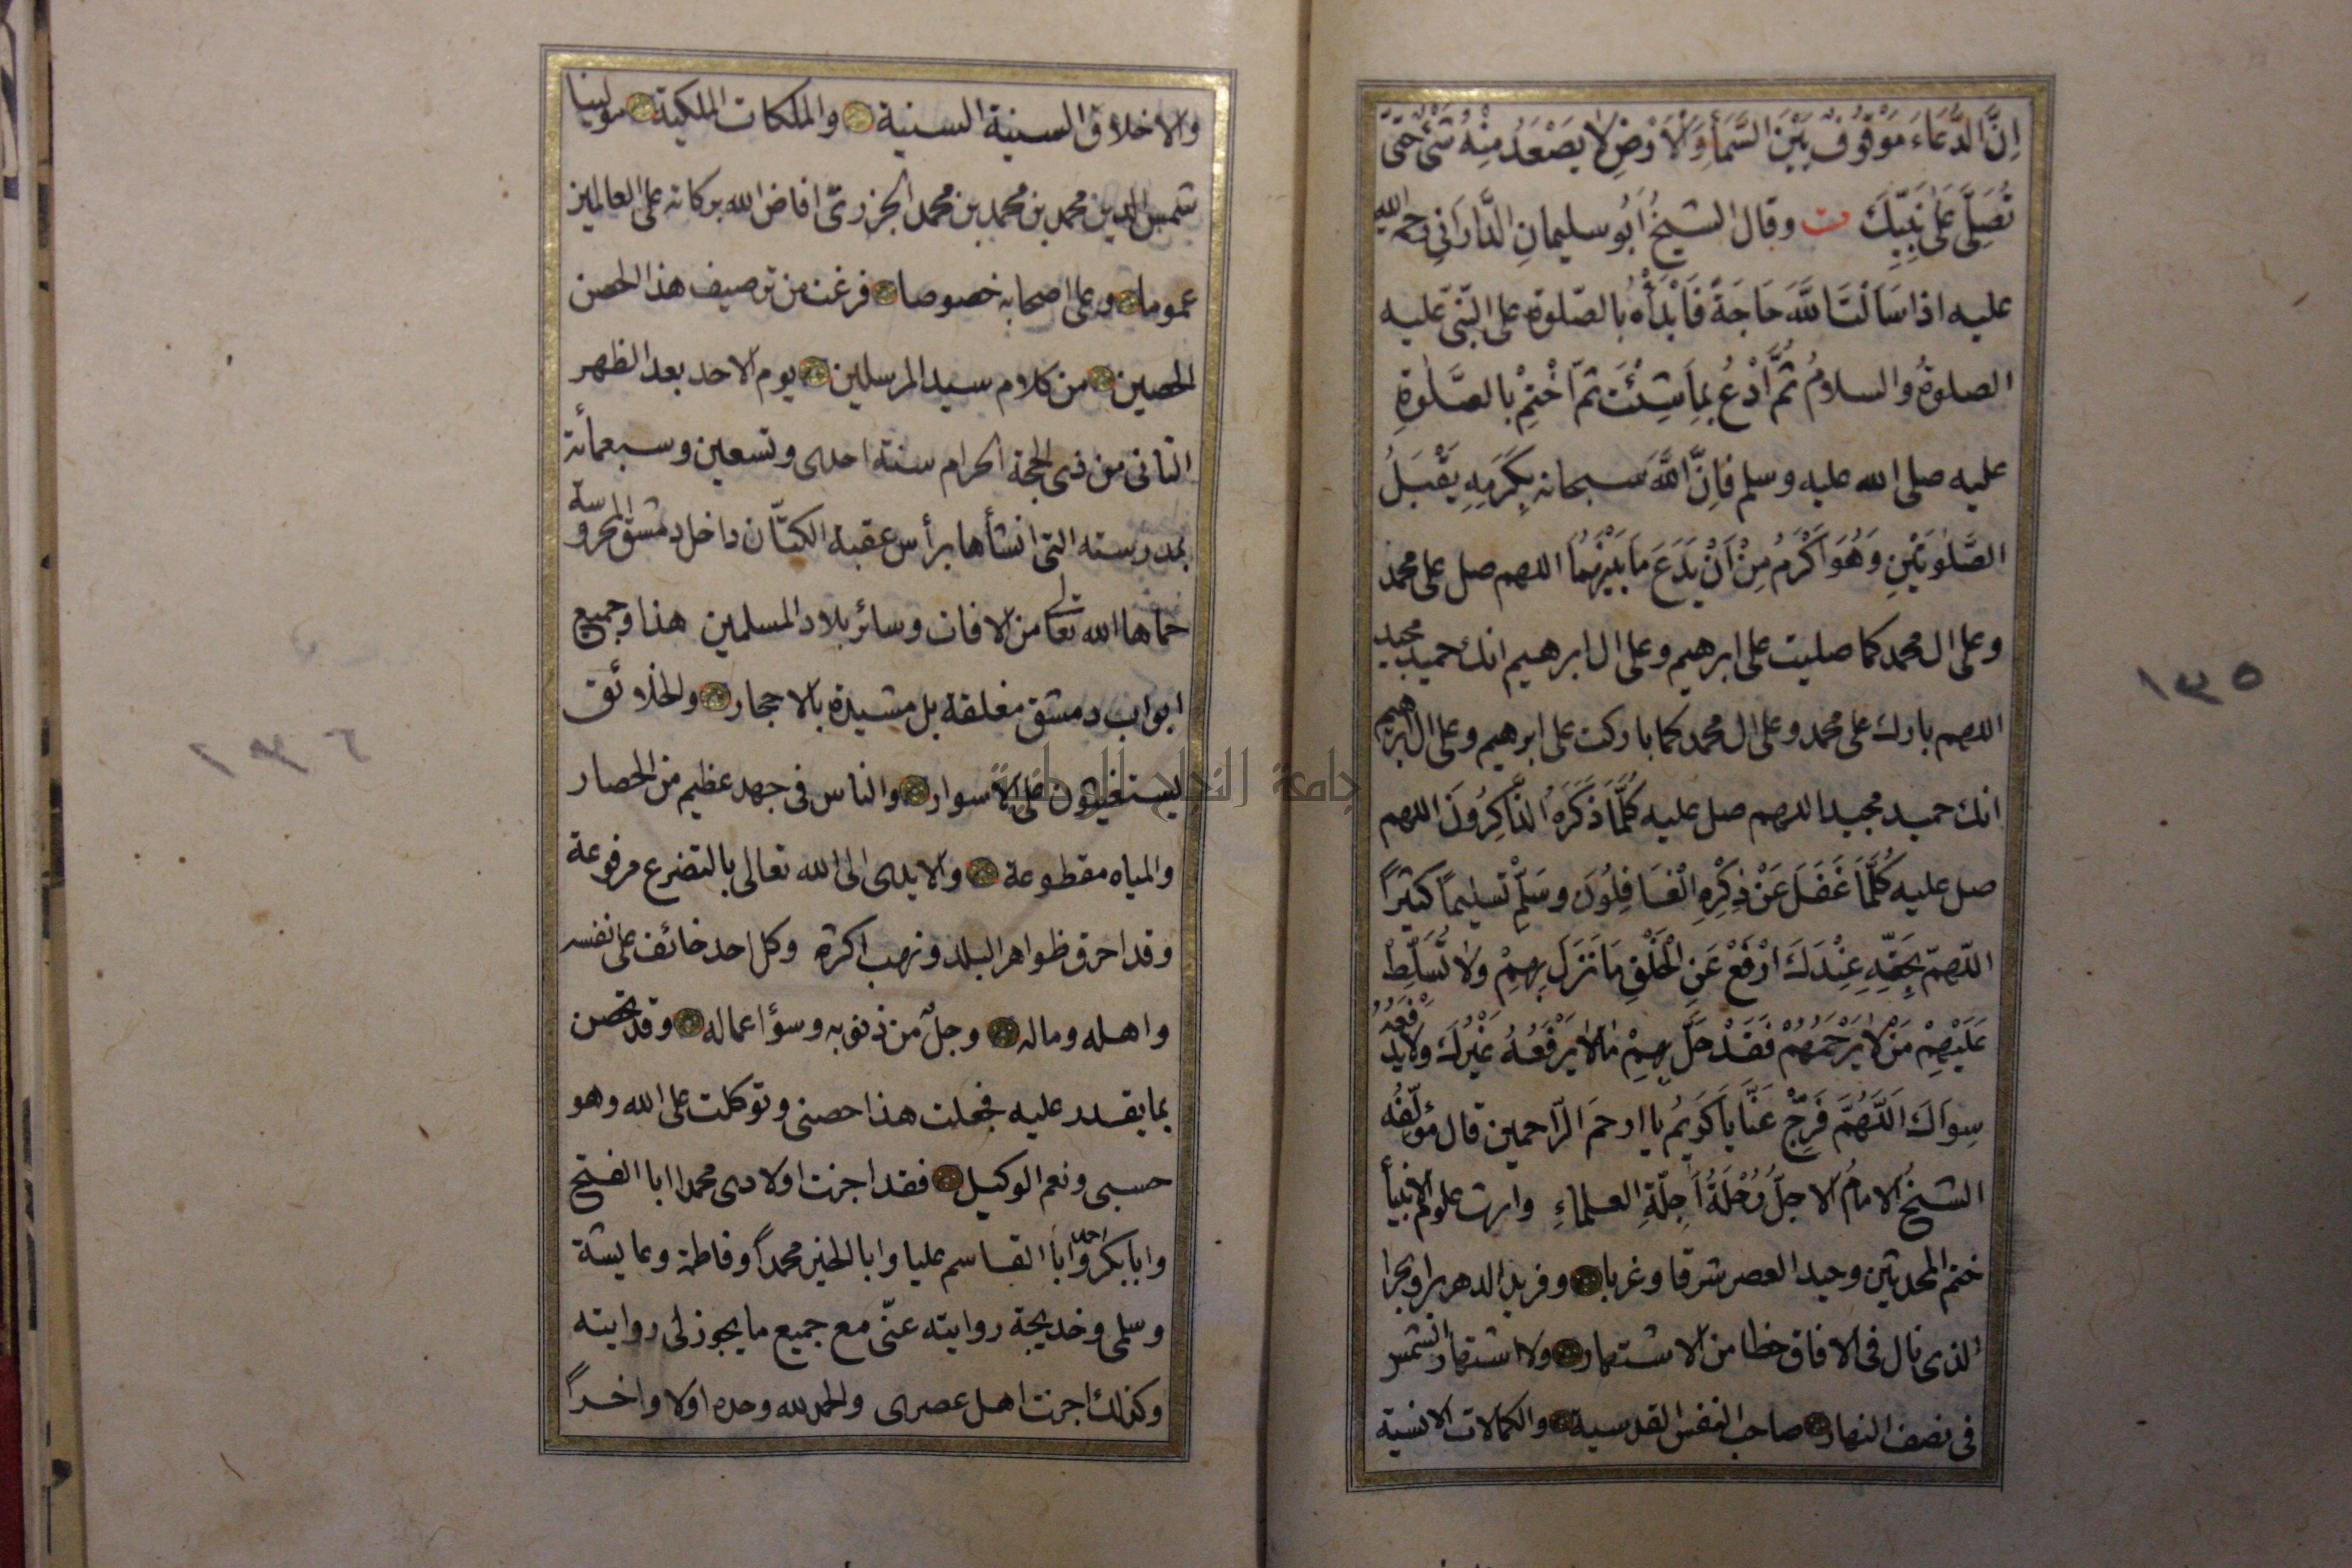 اِنَّ الدُّعَاءَ مَوْقُوفٌ بَيْنَ السَّمَاءِ وَالْاَرْضِ لَا يَصْعَدُ مِنْهُ شَیْءٌ حَتّٰى
تُصَلِّىَ عَلٰى نَبِيِّكَ ت وقال الشيخ اَبُو سليمانِ الدَّارَانِي رحمه الله
عليه اذا سَاَلْتَ اللّٰهَ حَاجَةً فَابْدَأْهُ بالصّلوة على النّبى عليه
الصلوةُ والسلامُ ثُمَّ ادْعُ بِمَا شِئْتَ ثمّ اخْتِمْ بالصَّلٰوةِ
عليه صلى الله عليه وسلم فاِنَّ اللّٰهَ سبحانه بِكَرَمِهِ يَقْبَلُ
الصَّلٰوتَيْنِ وَهُوَ اَكْرَمُ مِنْ اَنْ يَدَعَ مَا بَيْنَهُمَا اللهم صل على محمد
وعلى ال محمد كما صليت على ابرهيم وعلى ال ابرهيم انك حميد مجيد
اللهم بارك على محمد وعلى ال محمد كما باركت على ابرهيم وعلى ال ابرهيم
انك حميد مجيد اللهم صل عليه كُلَّمَا ذَكَرَهُ الذَّاكِرُونَ اللهم
صل عليه كُلَّمَا غَفَلَ عَنْ ذِكْرِهِ الْغَافِلُونَ وسَلِّمْ تسليمًا كثيرًا
اللّهمّ بِحَقِّهِ عِنْدَكَ ارْفَعْ عَنِ الْخَلْقِ مَا نَزَلَ بِهِمْ وَلَا تُسَلِّطْ
عَلَيْهِمْ مَنْ لَا يَرْحَمُهُمْ فَقَدْ حَلَّ بِهِمْ مَا لَا يَرْفَعُهُ غَيْرُكَ وَلَا يَدْفَعُهُ
سِوَاكَ اَللّٰهُمَّ فَرِّجْ عَنَّا يَا كَرِيمُ يا ارحمَ الرّاحمين قال مُؤلِّفُه
الشيخُ الامامُ الاجلُّ رُحْلَةُ اَجِلَّةِ العلماءِ وارث علوم الانبيأ
ختم المحدثين وحيد العصر شرقا وغربا وفريد الدهر برا وبحرا
الذى نال فى الافاق حظا من الاشتهار ولا اشتهار الشمس
فى نصف النهار صاحب النفس القدسية والكمالات الانسية
١٣٥
والاخلاق السنية السنية والملكات الملكية مولينا
شمس الدين محمد بن محمد بن محمد الجزرىّ افاض الله بركاته على العالمين
عموما وعلى اصحابه خصوصا فرغت من ترصيف هذا الحصن
الحصين من كلام سيد المرسلين يوم الاحد بعد الظهر
الثانى من ذى الحجة الحرام سنة احدى وتسعين وسبعمأئة
بمدرسته التى انشأها برأس عقبة الكتّان داخل دمشق المحروسة
حماها الله تعالى من الافات وسائر بلاد المسلمين هذا وجميع
ابواب دمشق مغلقة بل مشيدة بالاحجار والخلائق
يستغيثون على الاسوار والناس فى جهد عظيم من الحصار
والمياه مقطوعة والايدى الى الله تعالى بالتضرع مرفوعة
وقد احرق ظواهر البلد ونهب اكثره وكل احد خائف على نفسه
واهله وماله وجلٌ من ذنوبه وسؤ اعماله وقد تحصن
بما يقدر عليه فجعلت هذا حصنى وتوكلت على الله وهو
حسبى ونعم الوكيل فقد اجزت اولادى محمدا ابا الفتح
وابا بكر احمد وابا القاسم عليا وابا الخير محمداً وفاطمة وعايشة
وسلمى وخديجة روايته عنّى مع جميع ما يجوز لى روايته
وكذلك اجزت اهل عصرى والحمد لله وحده اولا واخراً
جامعة النجاح الوطنية